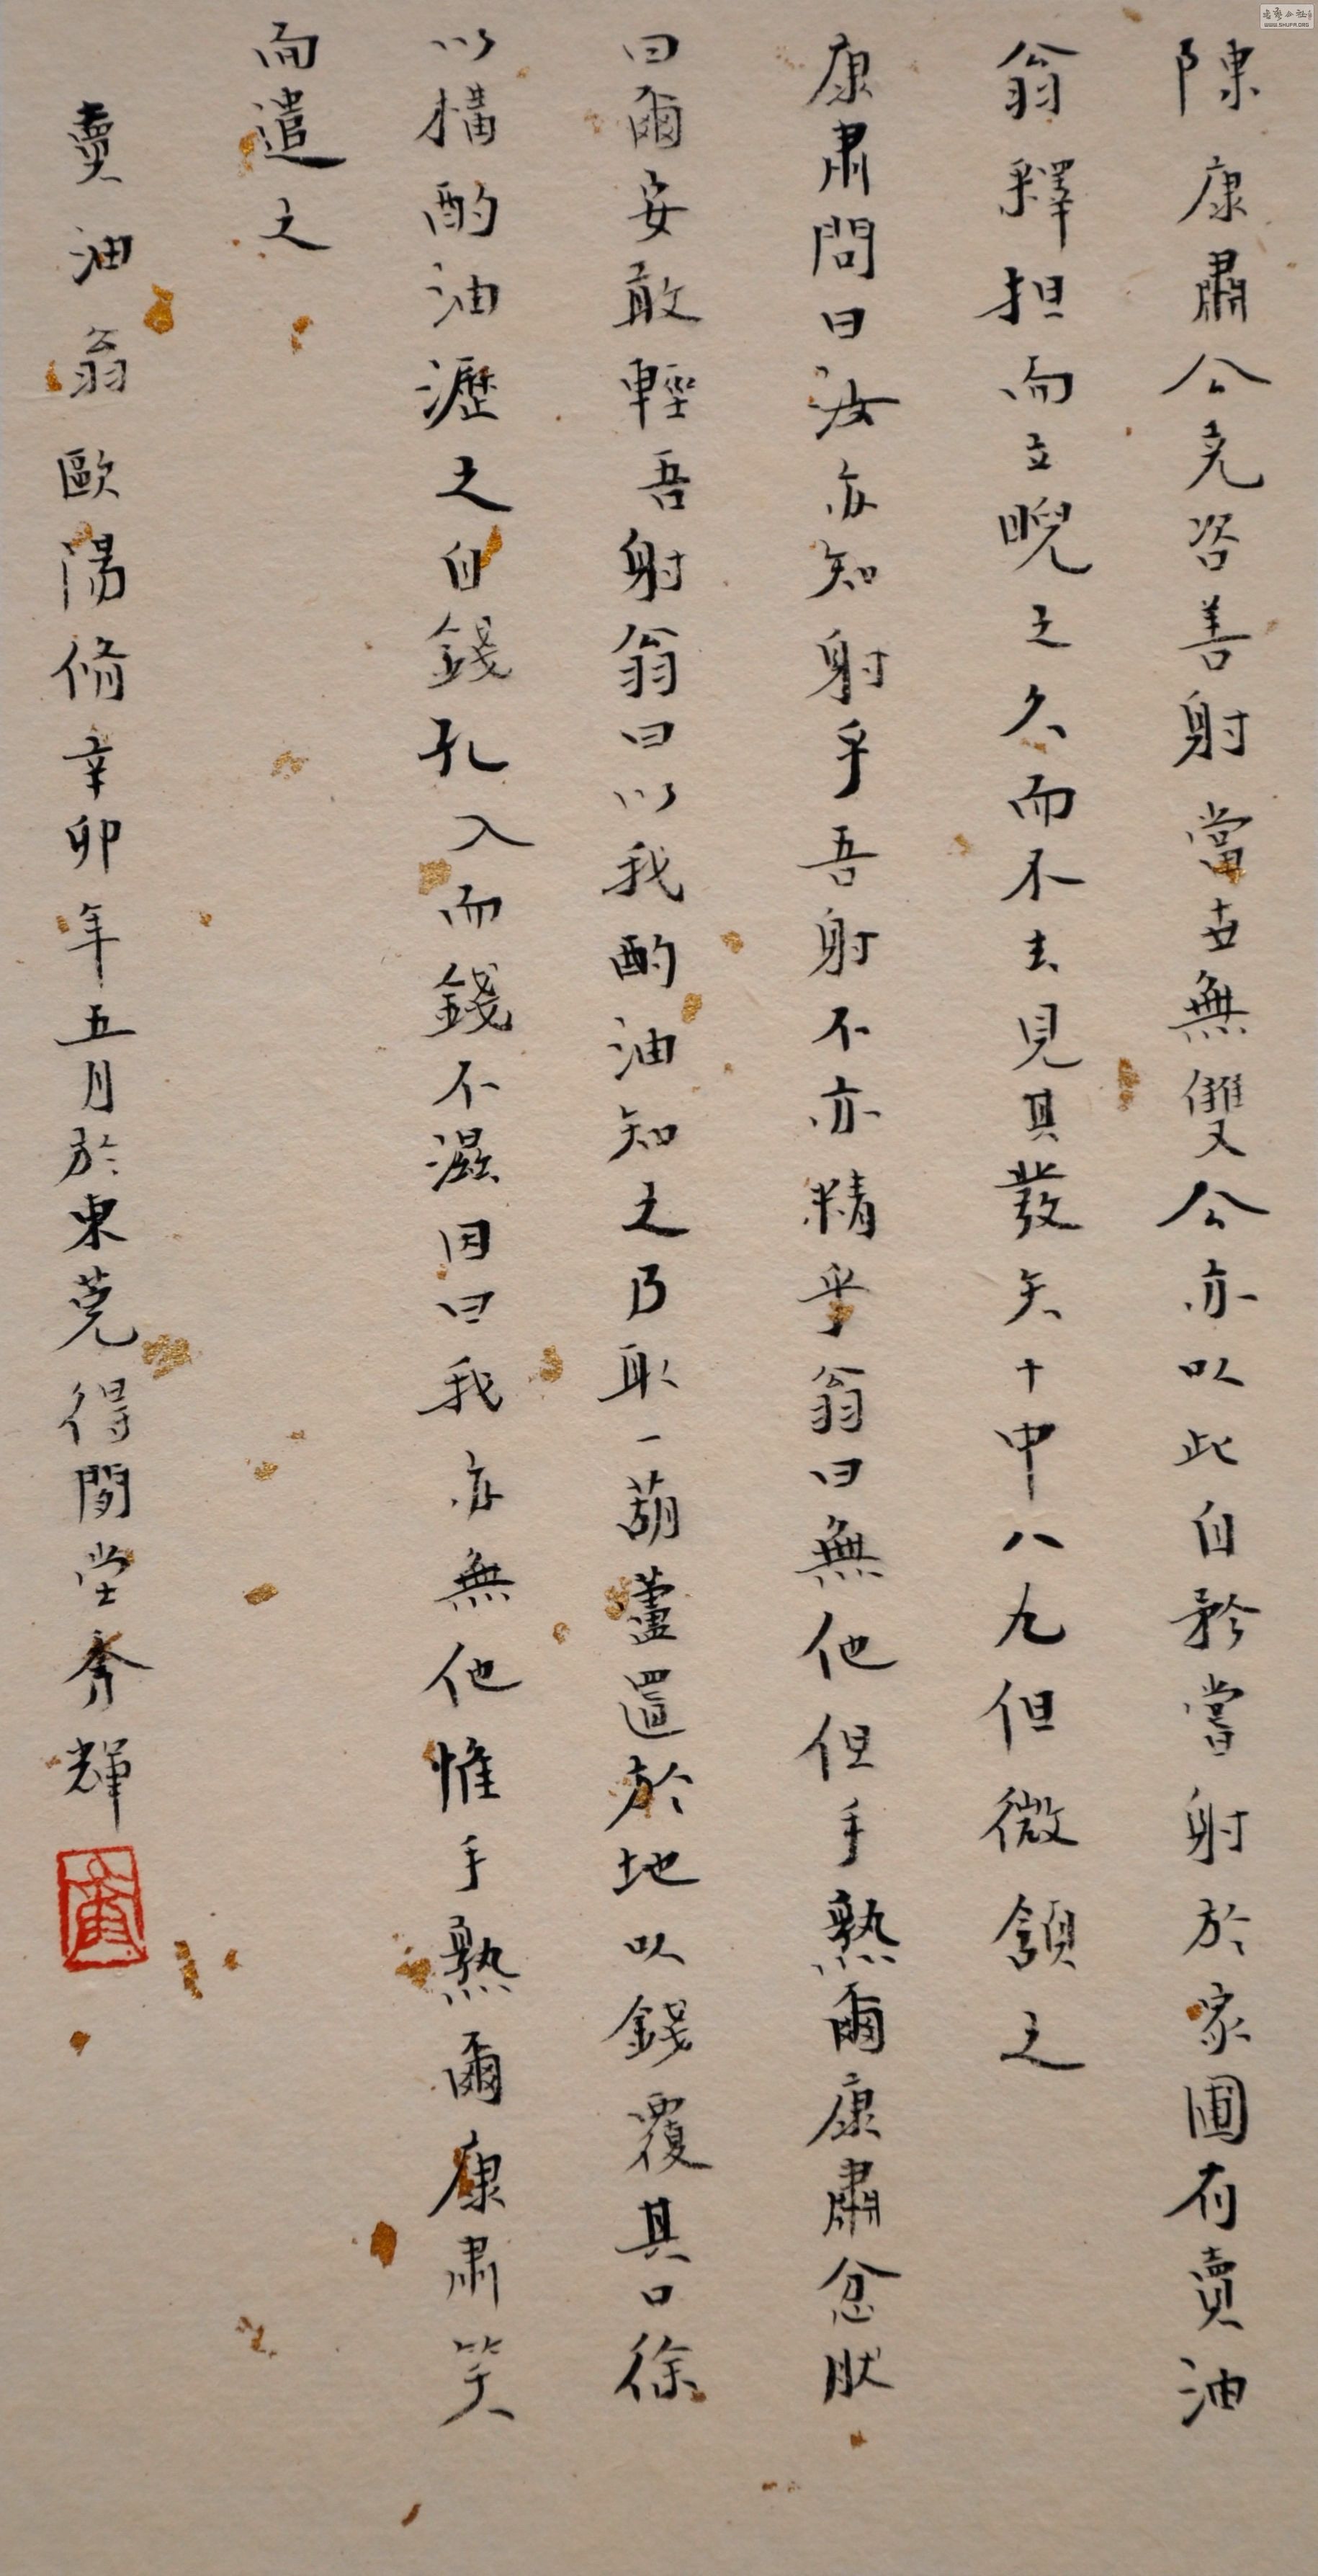 陳康肅公堯咨善射當世無雙公亦以此自矜嘗射於家圃有賣油
翁釋担而立睨之久而不去見其發矢十中八九但微頷之
康肅問曰汝亦知射乎吾射不亦精乎翁曰無他但手熟爾康肅忿肰
曰爾安敢輕吾射翁曰以我酌油知之乃取一葫蘆置於地以錢覆其口徐
以構酌油瀝之自錢孔入而錢不濕因曰我亦無他惟手熟爾康肅笑
而遣之
賣油翁歐陽脩辛卯年五月於東莞得閒堂齊輝
WWW.SHUFA.ORG